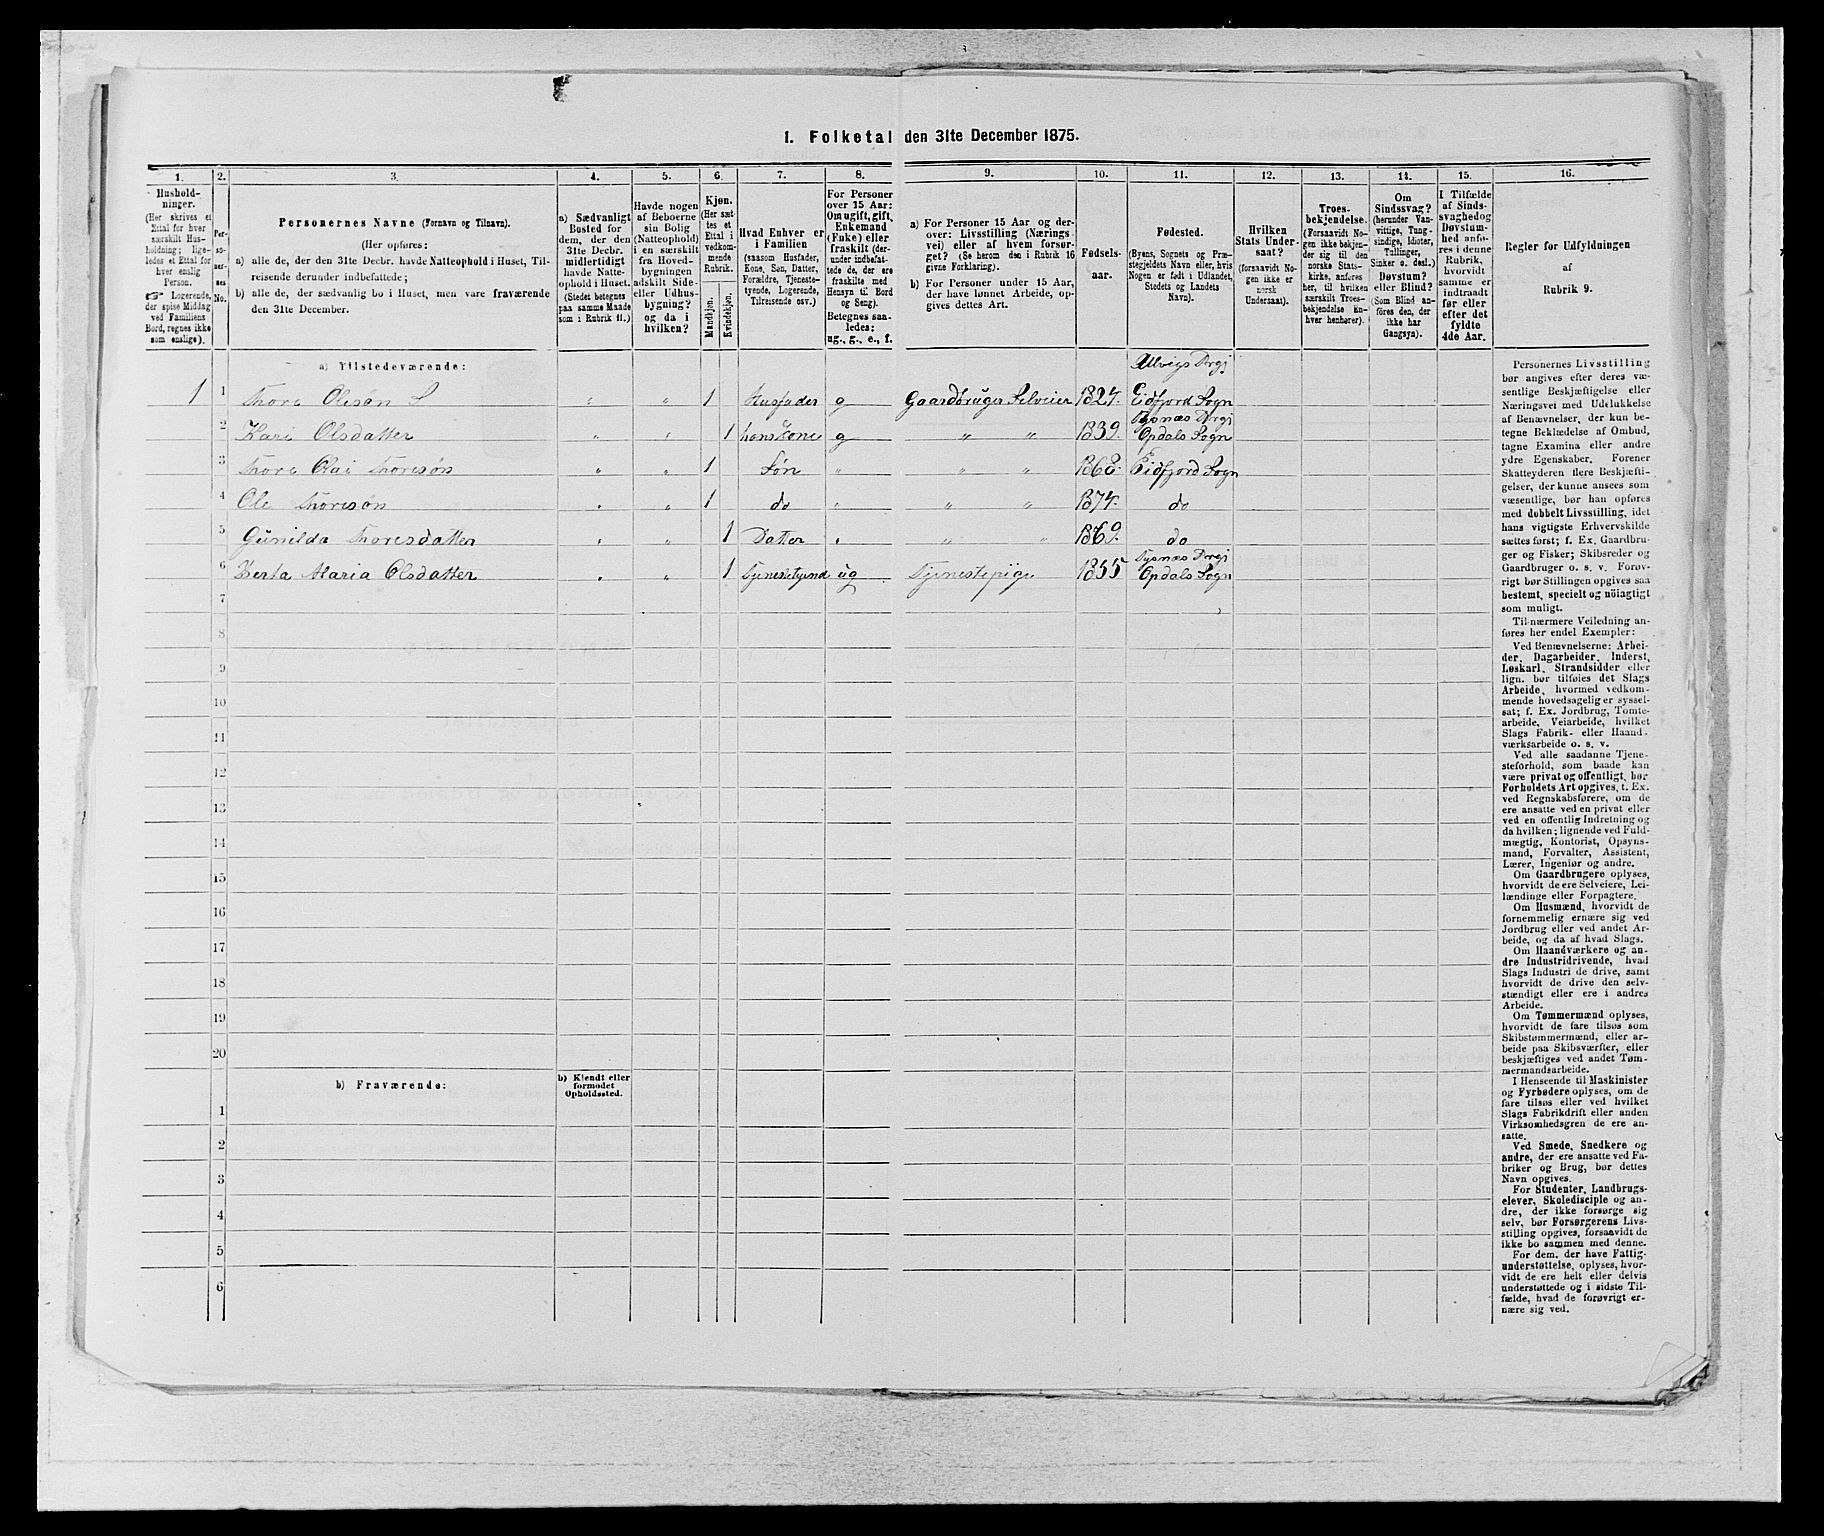 1. Folketal den 31te December 1875.
1.
2.
3.
4.
5.
6.
7.
8.
9.
10.
11.
12.
13.
14.
15.
16.
Hushold-
ninger.
(Her skrives et
Ettal for hver
særskilt Hus-
holdning; lige-
ledes et Ettal for
hver enslig
Person.
☞ Logerende,
der spise Middag
ved Familiens
Bord, regnes ikke
som enslige).
Per-
so-
ner-
nes
No.
Personernes Navne (Fornavn og Tilnavn).
(Her opføres:
a) alle de, der den 31te Decbr. havde Natteophold i Huset, Til-
reisende derunder indbefattede;
b) alle de, der sædvanlig bo i Huset, men vare fraværende
den 31te December.
a) Sædvanligt
Bosted for
dem, der den
31te Decbr.
midlertidigt
havde Natte-
ophold i Huset.
(Stedet betegnes
paa samme Maade
som i Rubrik 11.)
Havde nogen
af Beboerne
sin Bolig
(Natteophold)
i en særskilt
fra Hoved-
bygningen
adskilt Side-
eller Udhus-
bygning?
og da i
hvilken?
Kjøn.
(Her sæt-
tes et
Ettal i
vedkom-
mende
Rubrik.
Mandkjøn.
Kvindekjøn.
Hvad Enhver er
i Familien
(saasom Husfader,
Kone, Søn, Datter,
Forældre, Tjeneste-
tyende, Logerende,
Tilreisende osv.)
For Personer
over 15 Aar:
Om ugift, gift,
Enkemand
(Enke) eller
fraskilt (der-
under indbefat-
tede de, der ere
fraskilte med
Hensyn til Bord
og Seng).
Betegnes saa-
ledes:
ug., g., e., f.
a) For Personer 15 Aar og der-
over: Livsstilling (Nærings-
vei) eller af hvem forsør-
get? (Se herom den i Rubrik 16
givne Forklaring).
b) For Personer under 15 Aar,
der have lønnet Arbeide, op-
gives dettes Art.
Fødsels-
aar.
Fødested.
(Byens, Sognets og Præ-
stegjeldets Navn eller, hvis
Nogen er født i Udlandet,
Stedets og Landets
Navn).
Hvilken
Stats Under-
saat?
(forsaavidt No-
gen ikke er
norsk
Undersaat).
Troes-
bekjendelse.
(Forsaavidt No-
gen ikke bekjen-
der sig til den
norske Stats-
kirke, anføres
her, til hvilken
særskilt Troes-
bekjendelse En-
hver henhører).
Om
Sindssvag?
(herunder Van-
vittige, Tung-
sindige, Idioter,
Tullinger,
Sinker o. desl.)
Døvstum?
eller Blind?
(Som Blind an-
føres den, der
ikke har
Gangsyn).
I Tilfælde
af Sinds-
svaghed og
Døvstum-
hed anfø-
res i denne
Rubrik,
hvorvidt
samme er
indtraadt
før eller
efter det
fyldte
4de Aar.
Regler for Udfyldningen
af
Rubrik 9.
a) Tilstedeværende:
Ulvigs Prgj
1 1 Thore Olesøn S " " 1 Husfader g Gaardbruger Selveier 1824. Eidfjord Sogn
Tysnæs Prgj
2 Kari Olsdatter " " 1 hans Kone g " " 1839. Opdals Sogn
3 Thore Olai Thoresøn " " 1 Søn " " " 1868. Eidfjord Sogn
4 Ole Thoresøn " " 1 do " " " 1874. do
5 Gunilda Thoresdatter " " 1 Datter " " " 1869. do
Tysnæs Prgj
6 Berta Maria Olsdatter " " 1 Tjenestetyende ug Tjenestepige 1855 Opdals Sogn
7
8
9
10
11
12
13
14
15
16
17
18
19
20
b) Fraværende:
b) Kjendt eller
formodet
Opholdssted.
1
2
3
4
5
6
Personernes Livsstilling
bør angives efter deres væ-
sentlige Beskjæftigelse eller
Næringsvei med Udelukkelse
af Benævnelser, der kun be-
tegne Beklædelse af Ombud,
tagne Examina eller andre
ydre Egenskaber. Forener
Skatteyderen flere Beskjæfti-
gelser, der kunne ansees som
væsentlige, bør han opføres
med dobbelt Livsstilling, idet
hans vigtigste Erhvervskilde
sættes først; f. Ex. Gaardbru-
ger og Fisker; Skibsreder og
Gaardbruger o. s. v. Forøv-
rigt bør Stillingen opgives saa
bestemt, specielt og nøiagtigt
som muligt.
Til nærmere Veiledning an-
føres her endel Exempler:
Ved Benævnelserne: Arbei-
der, Dagarbeider, Inderst,
Løskarl, Strandsidder eller
lign. bør tilføies det Slags
Arbeide, hvormed vedkom-
mende hovedsagelig er syssel-
sat; f. Ex. Jordbrug, Tomte-
arbeide, Veiarbeide, hvilket
Slags Fabrik- eller Haand-
værksarbeide o. s. v.
Ved alle saadanne Tjene-
steforhold, som baade kan
være privat og offentligt, bør
Forholdets Art opgives, t. Ex.
ved Regnskabsførere, om de
ere ansatte ved en privat eller
ved en offentlig Indretning og
da hvilken; lignende ved Fuld-
mægtig, Kontorist, Opsyns-
mand, Forvalter, Assistent,
Lærer, Ingeniør og andre.
Om Gaardbrugere oplyses,
hvorvidt de ere Selveiere, Lei-
lændinge eller Forpagtere.
Om Husmænd, hvorvidt de
fornemmelig ernære sig ved
Jordbrug eller ved andet Ar-
beide, og da af hvad Slags.
Om Haandværkere og an-
dre Industridrivende, hvad
Slags Industri de drive, samt
hvorvidt de drive den selv-
stændigt eller ere i andres
Arbeide.
Om Tømmermænd oplyses,
hvorvidt de fare tilsøs som
Skibstømmermænd, eller ar-
beide paa Skibsværfter, eller
beskjæftiges ved andet Tøm-
mermandsarbeide.
I Henseende til Maskinister
og Fyrbødere oplyses, om de
fare tilsøs eller ved hvilket
Slags Fabrikdrift eller anden
Virksomhedsgren de ere an-
satte.
Ved Smede, Snedkere og
andre, der ere ansatte ved Fa-
briker og Brug, bør dettes
Navn opgives.
For Studenter, Landbrugs-
elever, Skoledisciple og an-
dre, der ikke forsørge sig
selv, bør Forsørgerens Livs-
stilling opgives, forsaavidt de
ikke bo sammen med denne.
For dem, der have Fattig-
understøttelse, oplyses, hvor-
vidt de ere helt eller delvis
understøttede og i sidste Til-
fælde, hvad de forøvrigt er-
nære sig ved.